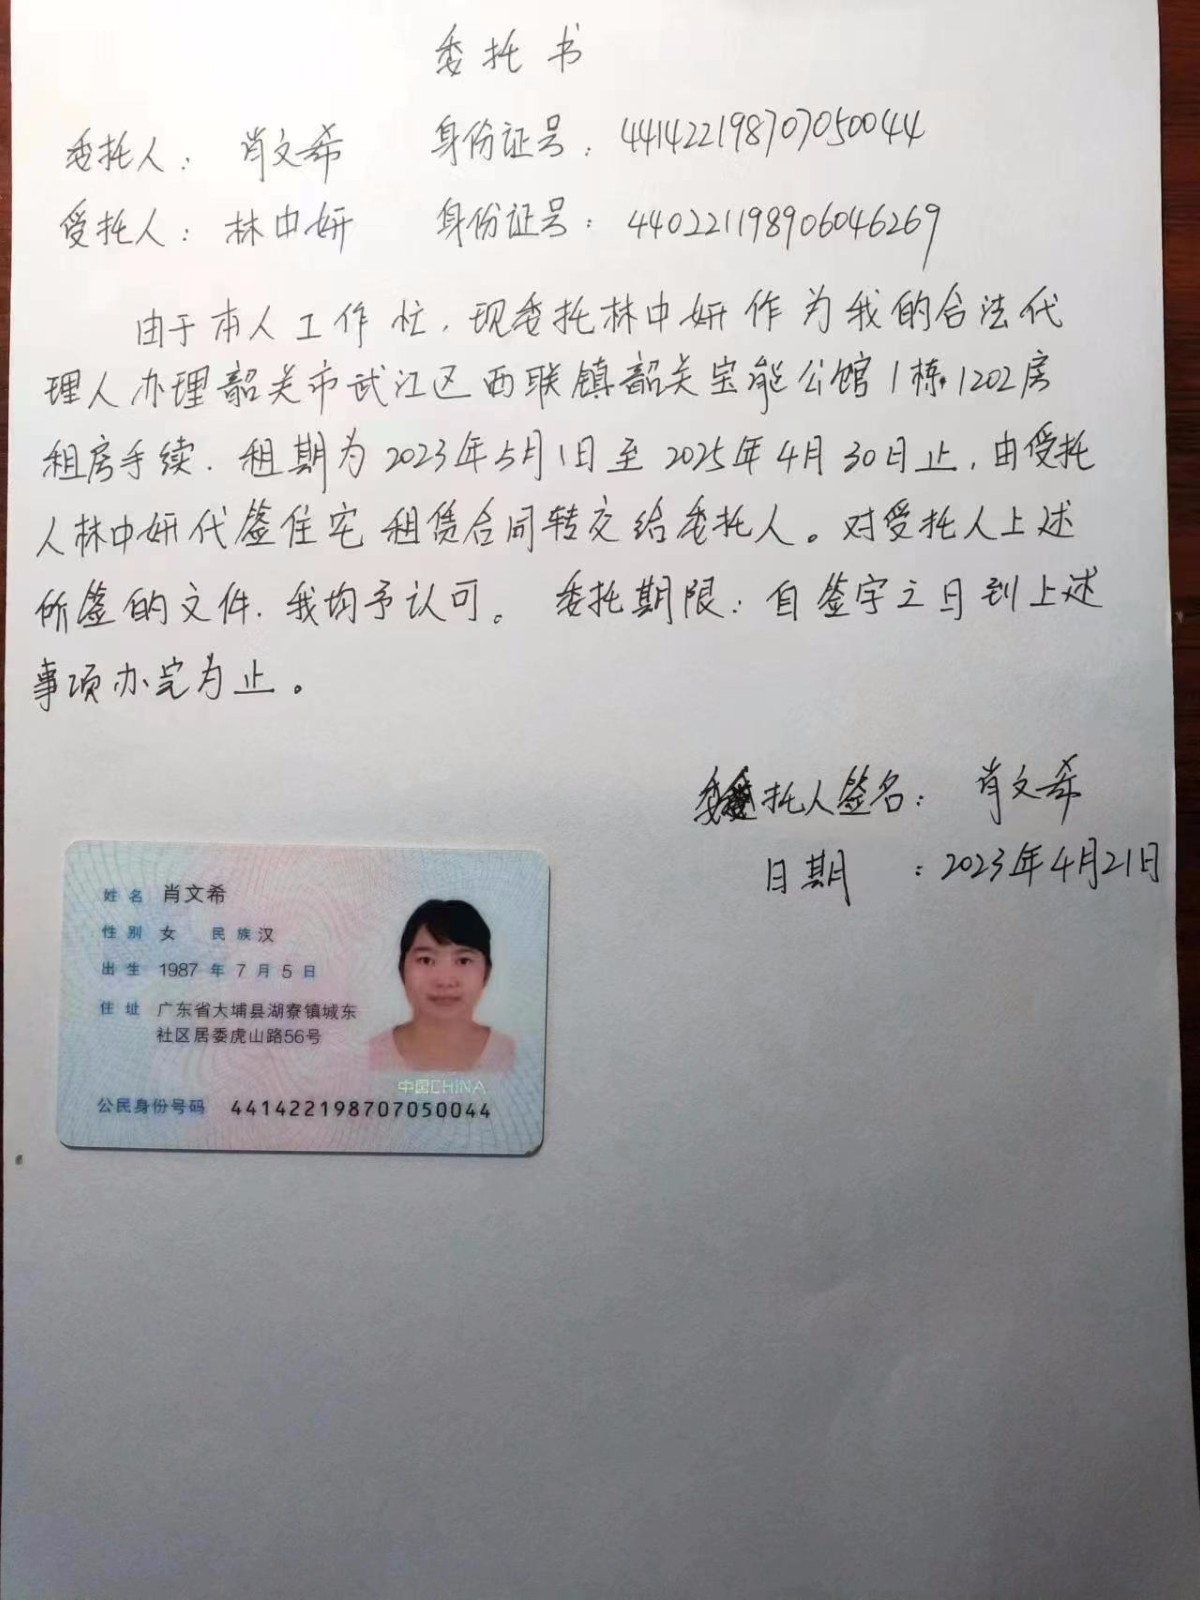 委托书
委托人：肖文希 身份证号：441422198707050044
受托人：林中妍 身份证号：440221198906046269
由于本人工作忙，现委托林中妍作为我的合法代
理人办理韶关市武江区西联镇韶关宝能公馆1栋1202房
租房手续，租期为2023年5月1日至2025年4月30日止，由受托
人林中妍代签住宅租赁合同转交给委托人。对受托人上述
所签的文件，我均予认可。委托期限：自签字之日到上述
事项办完为止。
委托人签名：肖文希
日期：2023年4月21日
姓名 肖文希
性别 女 民族 汉
出生 1987年7月5日
住址 广东省大埔县湖寮镇城东
社区居委虎山路56号
中国CHINA
公民身份号码 441422198707050044